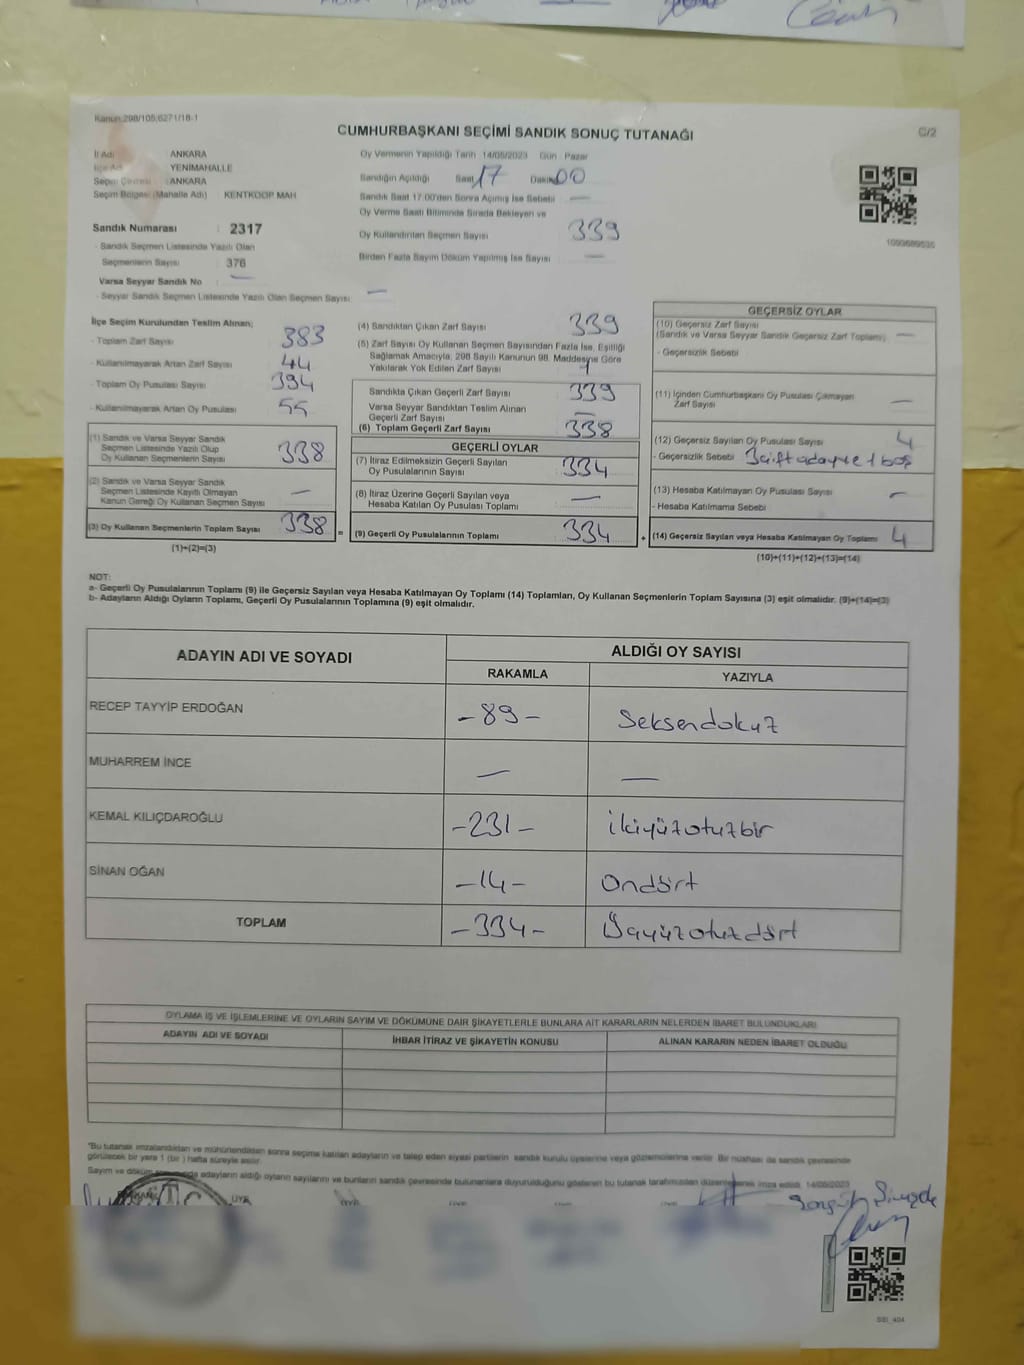 Kanun:298/105,6271/18-1
CUMHURBAŞKANI SEÇİMİ SANDIK SONUÇ TUTANAĞI
C/2
İl Adı ANKARA
İlçe Adı YENİMAHALLE
Seçim Çevresi : ANKARA
Seçim Bölgesi (Mahalle Adı) KENTKOOP MAH
Sandık Numarası : 2317
- Sandık Seçmen Listesinde Yazılı Olan
Seçmenlerin Sayısı : 376
Varsa Seyyar Sandık No : —
- Seyyar Sandık Seçmen Listesinde Yazılı Olan Seçmen Sayısı: —
Oy Vermenin Yapıldığı Tarih 14/05/2023 Gün Pazar
Sandığın Açıldığı Saat 17 Dakika 00
Sandık Saat 17:00'den Sonra Açımış İse Sebebi —
Oy Verme Saati Bitiminde Sırada Bekleyen ve
Oy Kullandırılan Seçmen Sayısı 339
Birden Fazla Sayım Döküm Yapılmış İse Sayısı —
1093689535
İlçe Seçim Kurulundan Teslim Alınan;
- Toplam Zarf Sayısı 383
- Kullanılmayarak Artan Zarf Sayısı 44
- Toplam Oy Pusulası Sayısı 394
- Kullanılmayarak Artan Oy Pusulası 55
(1) Sandık ve Varsa Seyyar Sandık
Seçmen Listesinde Yazılı Olup
Oy Kullanan Seçmenlerin Sayısı 338
(2) Sandık ve Varsa Seyyar Sandık
Seçmen Listesinde Kayıtlı Olmayan
Kanun Gereği Oy Kullanan Seçmen Sayısı —
(3) Oy Kullanan Seçmenlerin Toplam Sayısı 338 =
(1)+(2)=(3)
(4) Sandıktan Çıkan Zarf Sayısı 339
(5) Zarf Sayısı Oy Kullanan Seçmen Sayısından Fazla İse, Eşitliği
Sağlamak Amacıyla, 298 Sayılı Kanunun 98. Maddesine Göre
Yakılarak Yok Edilen Zarf Sayısı 1
Sandıkta Çıkan Geçerli Zarf Sayısı 339
Varsa Seyyar Sandıktan Teslim Alınan
Geçerli Zarf Sayısı —
(6) Toplam Geçerli Zarf Sayısı 338
GEÇERLİ OYLAR
(7) İtiraz Edilmeksizin Geçerli Sayılan
Oy Pusulalarının Sayısı 334
(8) İtiraz Üzerine Geçerli Sayılan veya
Hesaba Katılan Oy Pusulası Toplamı —
(9) Geçerli Oy Pusulalarının Toplamı 334 +
GEÇERSİZ OYLAR
(10) Geçersiz Zarf Sayısı
(Sandık ve Varsa Seyyar Sandık Geçersiz Zarf Toplamı) —
- Geçersizlik Sebebi
(11) İçinden Cumhurbaşkanı Oy Pusulası Çıkmayan
Zarf Sayısı —
(12) Geçersiz Sayılan Oy Pusulası Sayısı 4
- Geçersizlik Sebebi 3 çift adayve 1 boş
(13) Hesaba Katılmayan Oy Pusulası Sayısı —
- Hesaba Katılmama Sebebi
(14) Geçersiz Sayılan veya Hesaba Katılmayan Oy Toplamı 4
(10)+(11)+(12)+(13)=(14)
NOT:
a- Geçerli Oy Pusulalarının Toplamı (9) ile Geçersiz Sayılan veya Hesaba Katılmayan Oy Toplamı (14) Toplamları, Oy Kullanan Seçmenlerin Toplam Sayısına (3) eşit olmalıdır. (9)+(14)=(3)
b- Adayların Aldığı Oyların Toplamı, Geçerli Oy Pusulalarının Toplamına (9) eşit olmalıdır.
ADAYIN ADI VE SOYADI
ALDIĞI OY SAYISI
RAKAMLA YAZIYLA
RECEP TAYYİP ERDOĞAN -89- Seksendokuz
MUHARREM İNCE — —
KEMAL KILIÇDAROĞLU -231- ikiyüzotuzbir
SİNAN OĞAN -14- Ondört
TOPLAM -334- Üçyüzotuzdört
OYLAMA İŞ VE İŞLEMLERİNE VE OYLARIN SAYIM VE DÖKÜMÜNE DAİR ŞİKAYETLERLE BUNLARA AİT KARARLARIN NELERDEN İBARET BULUNDUKLARI
ADAYIN ADI VE SOYADI İHBAR İTİRAZ VE ŞİKAYETİN KONUSU ALINAN KARARIN NEDEN İBARET OLDUĞU
*Bu tutanak imzalandıktan ve mühürlendikten sonra seçime katılan adayların ve talep eden siyasi partilerin sandık kurulu üyelerine veya gözlemcilerine verilir. Bir nüshası da sandık çevresinde
görülecek bir yere 1 (bir) hafta süreyle asılır.
adayların aldığı oyların sayılarını ve bunların sandık çevresinde bulunanlara duyurulduğunu gösteren bu tutanak tarafımızdan düzenlenerek imza edildi. 14/05/2023
ÜYE
SSI_404